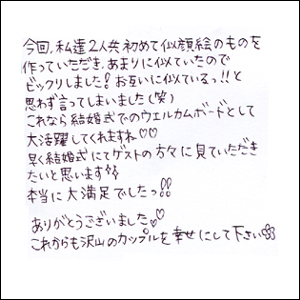 今回、私達2人共初めて似顔絵のものを
作っていただき、あまりに似ていたので
ビックリしました! お互いに似ているっ!!と
思わず言ってしまいました(笑)
これなら結婚式でのウエルカムボードとして
大活躍してくれますね♡♡
早く結婚式にてゲストの方々に見ていただき
たいと思います
本当に大満足でしたっ!!
ありがとうございました♡
これからも沢山のカップルを幸せにして下さい